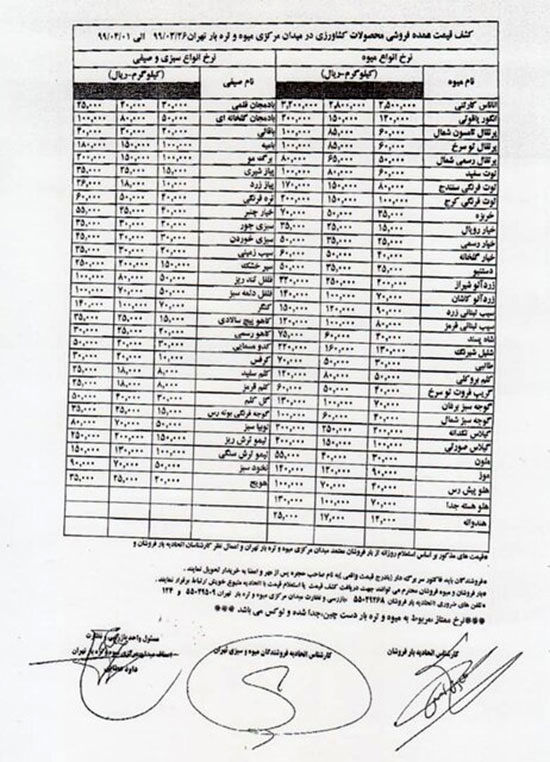 کشف قیمت عمده فروشی محصولات کشاورزی در میدان مرکزی میوه و تره بار تهران ۹۹/۰۳/۲۶ الی ۹۹/۰۴/۰۱
نرخ انواع میوه نرخ انواع سبزی و صیفی
نام میوه (کیلوگرم-ریال) نام صیفی (کیلوگرم-ریال)
آناناس کارتنی ۲,۵۰۰,۰۰۰ ۲,۸۰۰,۰۰۰ ۳,۲۰۰,۰۰۰ بادمجان قلمی ۲۰,۰۰۰ ۲۵,۰۰۰
انگور یاقوتی ۱۲۰,۰۰۰ ۱۵۰,۰۰۰ ۲۰۰,۰۰۰ بادمجان گلخانه ای ۵۰,۰۰۰ ۸۰,۰۰۰ ۱۰۰,۰۰۰
پرتقال تامسون شمال ۶۰,۰۰۰ ۸۵,۰۰۰ ۱۰۰,۰۰۰ باقالی ۲۰,۰۰۰ ۳۰,۰۰۰ ۴۰,۰۰۰
پرتقال تو سرخ ۶۰,۰۰۰ ۸۵,۰۰۰ ۱۰۰,۰۰۰ بامیه ۱۰۰,۰۰۰ ۱۵۰,۰۰۰ ۱۸۰,۰۰۰
پرتقال رسمی شمال ۵۰,۰۰۰ ۶۵,۰۰۰ ۸۰,۰۰۰ برگ مو ۱۰۰,۰۰۰ ۱۵۰,۰۰۰ ۲۰۰,۰۰۰
توت سفید ۶۰,۰۰۰ ۸۰,۰۰۰ ۱۰۰,۰۰۰ پیاز شیری ۱۵,۰۰۰ ۲۵,۰۰۰ ۳۵,۰۰۰
توت فرنگی سنندج ۸۰,۰۰۰ ۱۵۰,۰۰۰ ۱۷۰,۰۰۰ پیاز زرد ۱۰,۰۰۰ ۱۸,۰۰۰ ۲۶,۰۰۰
توت فرنگی کرج ۱۰۰,۰۰۰ ۱۵۰,۰۰۰ ۲۰۰,۰۰۰ تره فرنگی ۵۰,۰۰۰ ۶۰,۰۰۰
خربزه ۳۵,۰۰۰ ۵۰,۰۰۰ ۷۰,۰۰۰ خیار چنبر ۵۵,۰۰۰
خیار رویال ۱۵,۰۰۰ ۲۵,۰۰۰ ۳۵,۰۰۰ سبزی جور ۳۵,۰۰۰
خیار رسمی ۵۰,۰۰۰ سبزی خوردن ۳۰,۰۰۰
خیار گلخانه ۶۰,۰۰۰ سیب زمینی
دستنبو سیر خشکه ۱۵۰,۰۰۰ ۲۰۰,۰۰۰ ۲۵۰,۰۰۰
زردآلو شیراز ۲۰۰,۰۰۰ ۲۵۰,۰۰۰ فلفل تند ریز ۵۰,۰۰۰ ۸۰,۰۰۰ ۱۰۰,۰۰۰
زردآلو کاشان ۷۰,۰۰۰ ۱۰۰,۰۰۰ ۱۴۰,۰۰۰ فلفل دلمه سبز ۵۰,۰۰۰ ۷۰,۰۰۰ ۱۰۰,۰۰۰
سیب لبنانی زرد ۹۰,۰۰۰ ۱۲۰,۰۰۰ ۱۵۰,۰۰۰ کنگر ۷۰,۰۰۰ ۱۰۰,۰۰۰ ۱۴۰,۰۰۰
سیب لبنانی قرمز ۸۰,۰۰۰ ۱۰۰,۰۰۰ ۱۲۰,۰۰۰ کاهو پیچ سالادی ۱۵,۰۰۰ ۲۵,۰۰۰ ۳۵,۰۰۰
شاه پسند ۶۰,۰۰۰ ۷۵,۰۰۰ کاهو رسمی ۲۰,۰۰۰ ۲۵,۰۰۰ ۳۰,۰۰۰
شلیل شبرنگ ۱۳۰,۰۰۰ ۱۶۰,۰۰۰ ۲۲۰,۰۰۰ کدو مسمایی ۵۰,۰۰۰
طالبی ۳۰,۰۰۰ ۵۰,۰۰۰ ۷۰,۰۰۰ کرفس ۱۰,۰۰۰ ۲۰,۰۰۰ ۳۰,۰۰۰
کلم بروکلی ۵۰,۰۰۰ ۸۰,۰۰۰ ۱۲۰,۰۰۰ کلم سفید ۸,۰۰۰ ۱۸,۰۰۰ ۲۵,۰۰۰
گریپ فروت تو سرخ ۵۰,۰۰۰ ۶۰,۰۰۰ کلم قرمز ۸,۰۰۰ ۱۸,۰۰۰ ۲۵,۰۰۰
گوجه سبز برغان ۷۰,۰۰۰ ۱۰۰,۰۰۰ ۱۳۰,۰۰۰ گل کلم ۵۰,۰۰۰
گوجه سبز شمال ۶۰,۰۰۰ ۱۰۰,۰۰۰ گوجه فرنگی بوته رس ۱۵,۰۰۰ ۲۵,۰۰۰ ۳۵,۰۰۰
گیلاس تکدانه ۲۰۰,۰۰۰ ۲۵۰,۰۰۰ ۳۰۰,۰۰۰ لوبیا سبز ۵۰,۰۰۰ ۷۰,۰۰۰ ۸۰,۰۰۰
گیلاس صورتی ۱۰۰,۰۰۰ ۱۵۰,۰۰۰ ۲۰۰,۰۰۰ لیمو ترش ریز ۱۵۰,۰۰۰ ۲۰۰,۰۰۰ ۲۵۰,۰۰۰
ملون ۳۰,۰۰۰ ۴۰,۰۰۰ ۵۵,۰۰۰ لیمو ترش سنگی ۱۰۰,۰۰۰ ۱۳۰,۰۰۰ ۱۵۰,۰۰۰
موز ۹۰,۰۰۰ ۱۲۰,۰۰۰ ۱۴۰,۰۰۰ نخود سبز ۵۰,۰۰۰ ۷۰,۰۰۰ ۹۰,۰۰۰
هلو پیش رس ۴۰,۰۰۰ ۷۰,۰۰۰ ۱۰۰,۰۰۰ هویج ۲۰,۰۰۰ ۲۵,۰۰۰ ۳۵,۰۰۰
هلو هسته جدا ۷۰,۰۰۰ ۱۰۰,۰۰۰ ۱۳۰,۰۰۰
هندوانه ۱۲,۰۰۰ ۱۷,۰۰۰ ۲۵,۰۰۰
*قیمت های مذکور بر اساس استعلام روزانه از بار فروشان معتمد میدان مرکزی میوه و تره بار تهران و اعمال نظر کارشناسان اتحادیه بار فروشان و
*فروشندگان باید فاکتور سر برگ دار (بادرج قیمت واقعی) به نام صاحب حجره پس از مهر و امضا به خریدار تحویل نمایند.
*بار فروشان و میوه فروشان محترم می توانند جهت دریافت کشف قیمت یا استعلام قیمت با اتحادیه متبوع خویش ارتباط برقرار نمایند.
*تلفن های ضروری : اتحادیه بار فروشان ۵۵۰۲۹۲۶۸ بازرسی و نظارت میدان مرکزی میوه و تره بار تهران ۵۵۰۲۹۵۰۹ و ۱۲۴
***نرخ ممتاز مربوط به میوه و تره بار دست چین،جدا شده و لوکس می باشد ***
کارشناس اتحادیه بار فروشان کارشناس اتحادیه فروشندگان میوه و سبزی تهران مسئول واحد بازرسی و نظارت